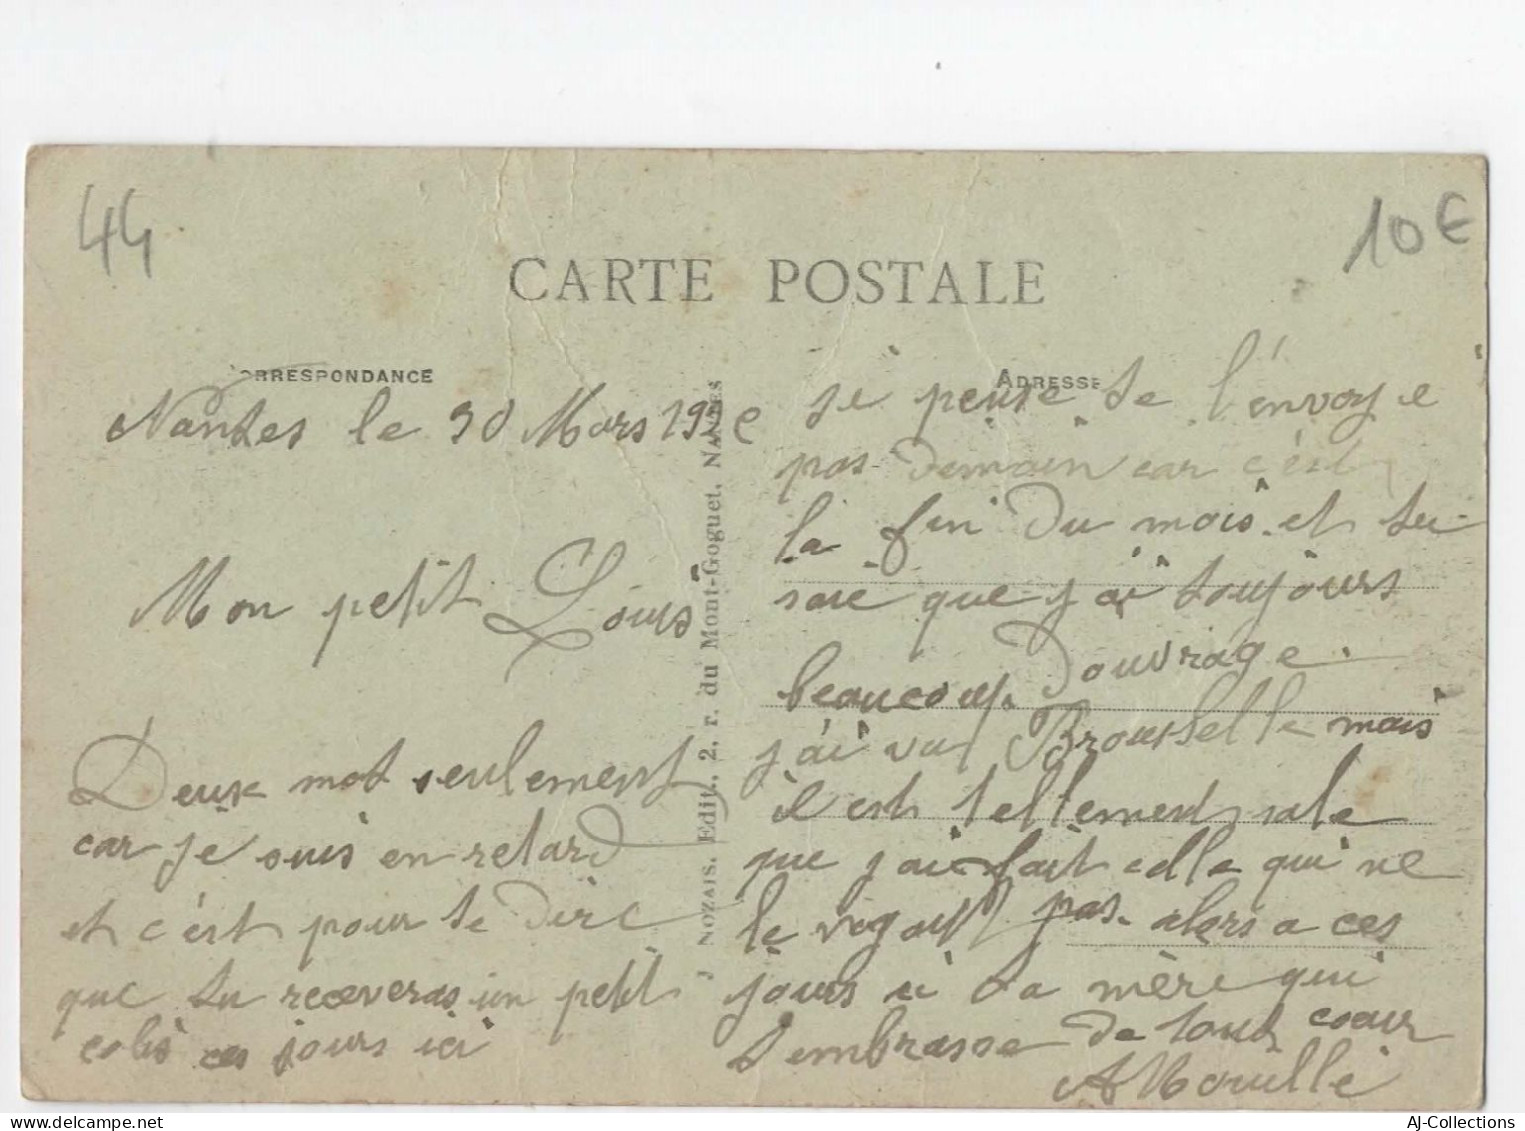 44
10€
CARTE POSTALE
CORRESPONDANCE
ADRESSE
Nantes le 30 Mars
Mon petit Louis
Deux mot seulement
car je suis en retard
et c'est pour te dire
que tu receveras un petit
colis ces jours ici
J NOZAIS. Edit., 2, r. du Mont-Goguet, NANTES
si peuxe te l'envoyé
pas demain car c'est
la fin du mois et tu
saie que j'ai toujours
beaucoup d'ouvrage.
j'ai vut Brousselle mais
il est tellement sale
que j'ai fait celle qui ne
le voyait pas. alors a ces
jours ici ta mère qui
t'embrasse de tout cœur
AJ-Collections